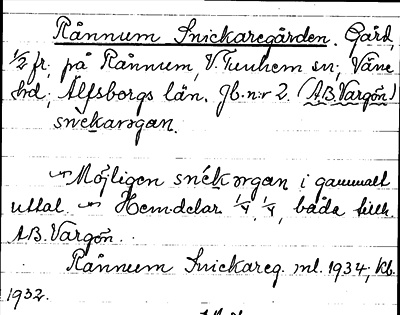 Rånnum Snickaregården. Gård,
1/2 fr. på Rånnum, V. Tunhem sn; Väne
hd; Älfsborgs län. Jb. n:r 2. (A.B. Vargön)
snèkarəgan.
Möjligen snékərgan i gammalt
uttal. Hemdelar 1/4, 1/4, båda tillh.
A.B. Vargön.
Rånnum Snickareg. ml. 1934; Kb.
1932.